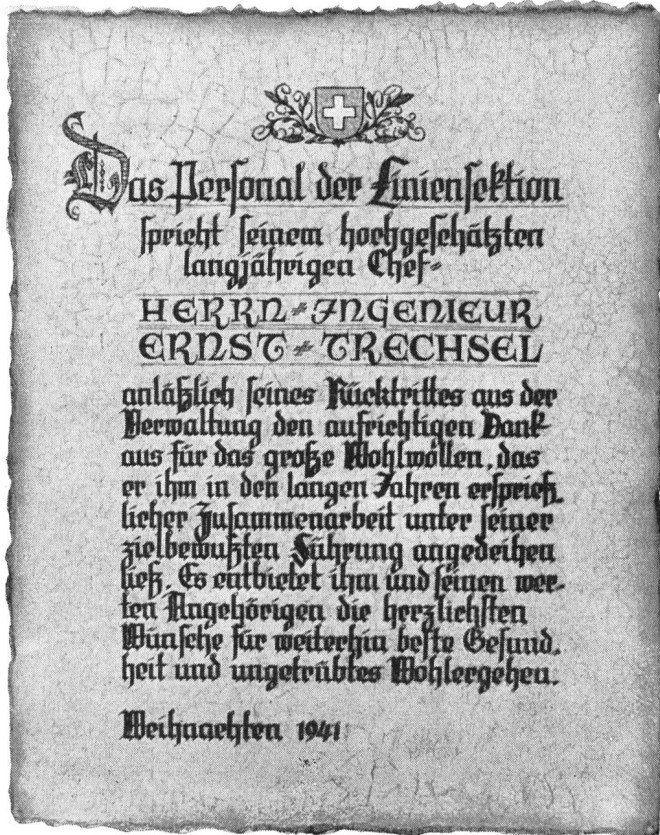 Das Personal der Liniensektion
spricht seinem hochgeschätzten
langjährigen Chef-
HERRN - INGENIEUR
ERNST - TRECHSEL
anläßlich seines Rücktrittes aus der
Verwaltung den aufrichtigen Dank
aus für das große Wohlwollen, das
er ihm in den langen Jahren ersprieß-
licher Zusammenarbeit unter seiner
zielbewußten Führung angedeihen
ließ. Es entbietet ihm und seinen wer-
ten Angehörigen die herzlichsten
Wünsche für weiterhin beste Gesund-
heit und ungetrübtes Wohlergehen.
Weihnachten 1941